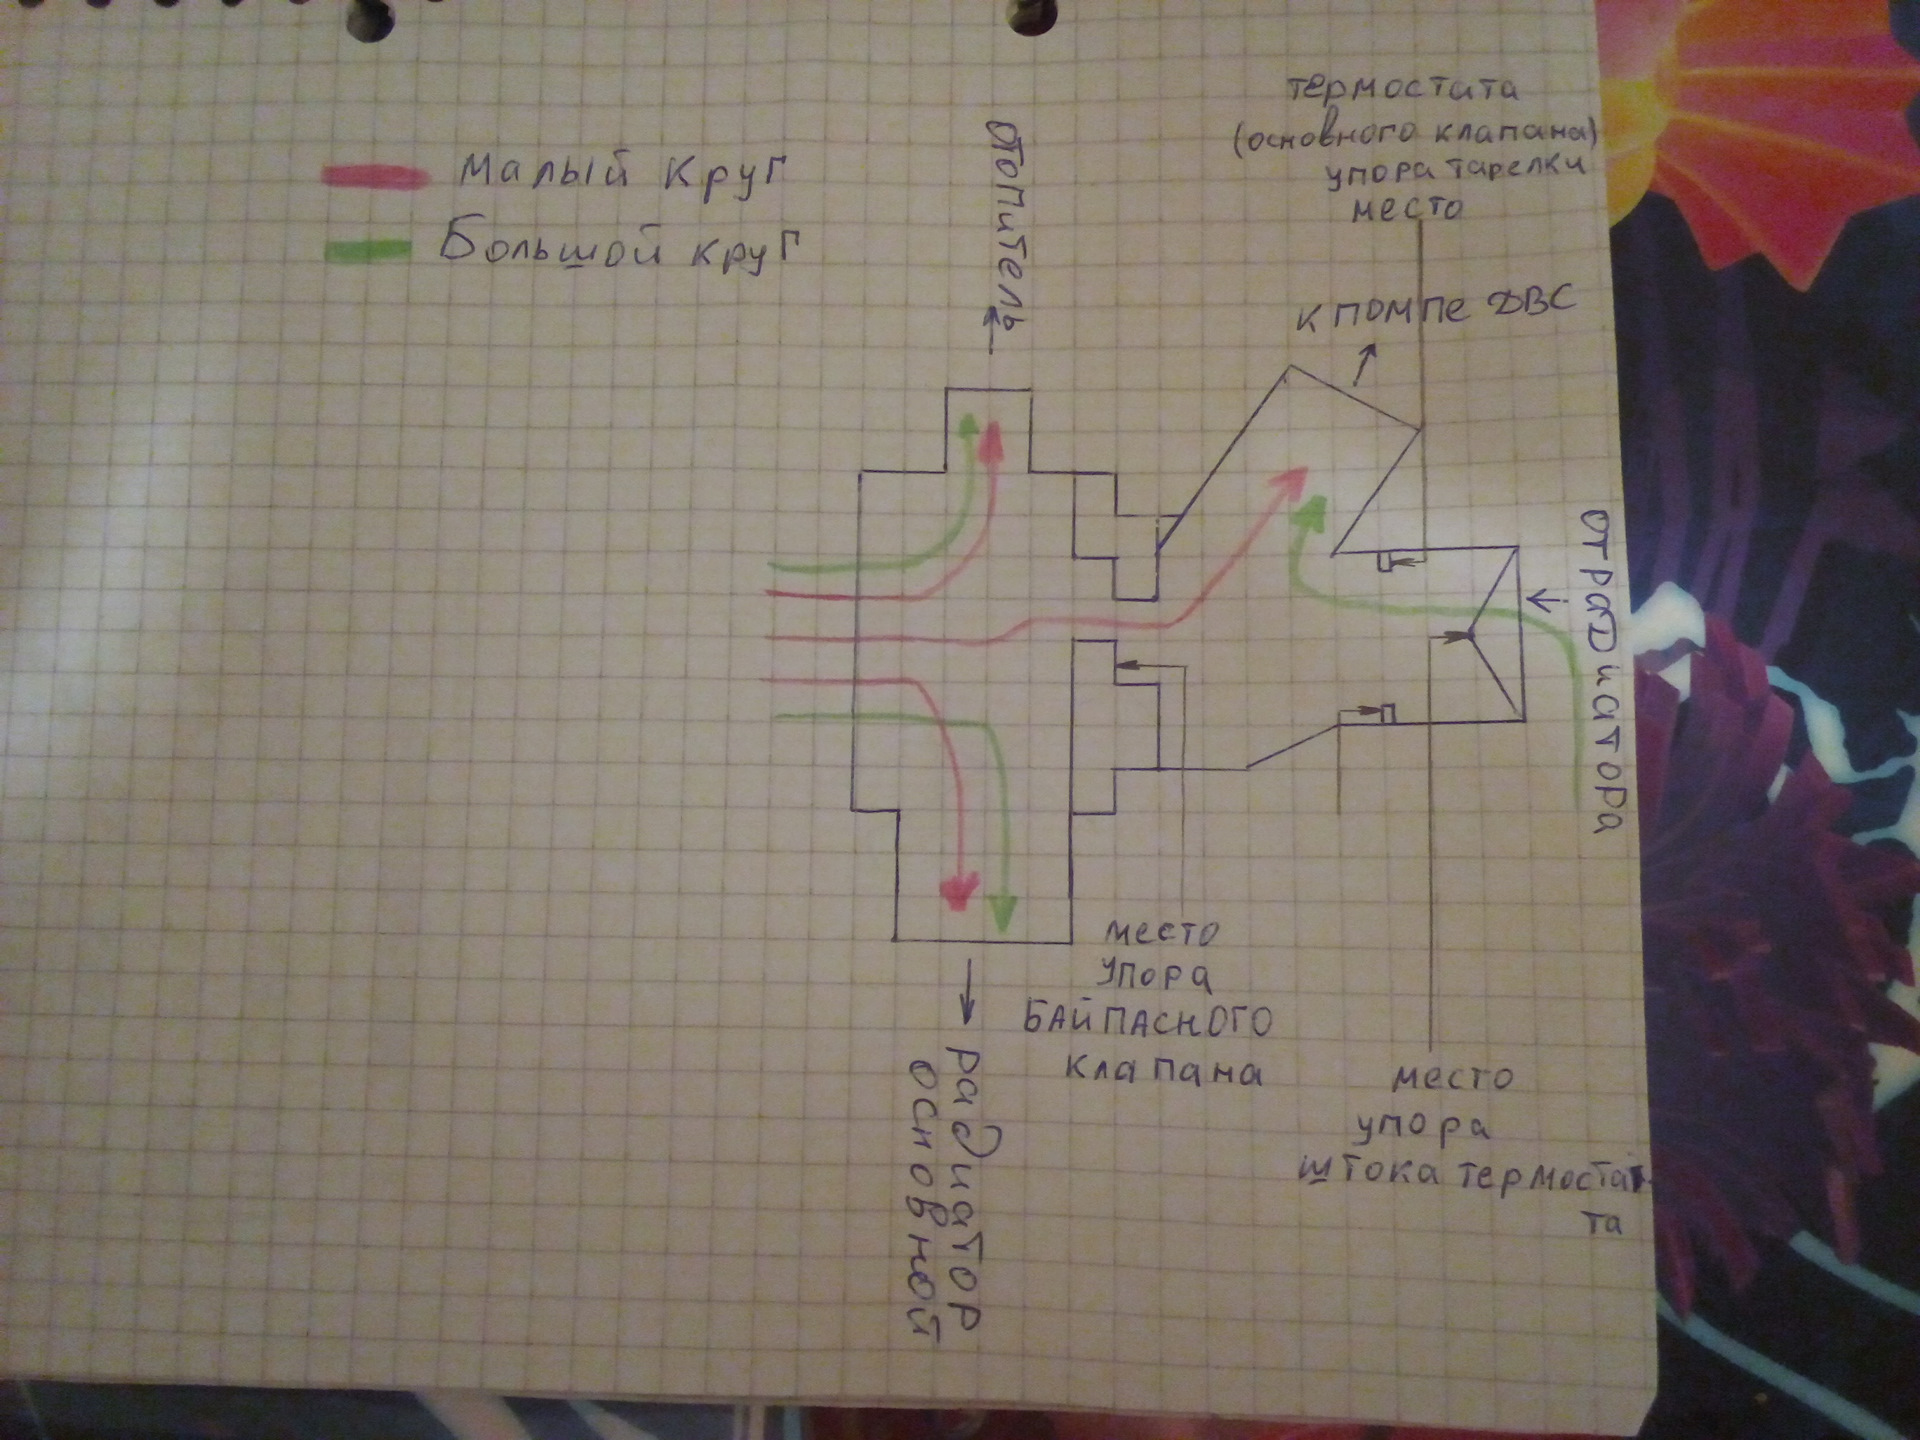 термостата
(основного клапана)
упора тарелки
место
Малый круг
Большой круг
отопитель
к помпе ДВС
от радиатора
место
упора
БАЙПАСНОГО
клапана
место
упора
штока термоста-
та
радиатор
основной